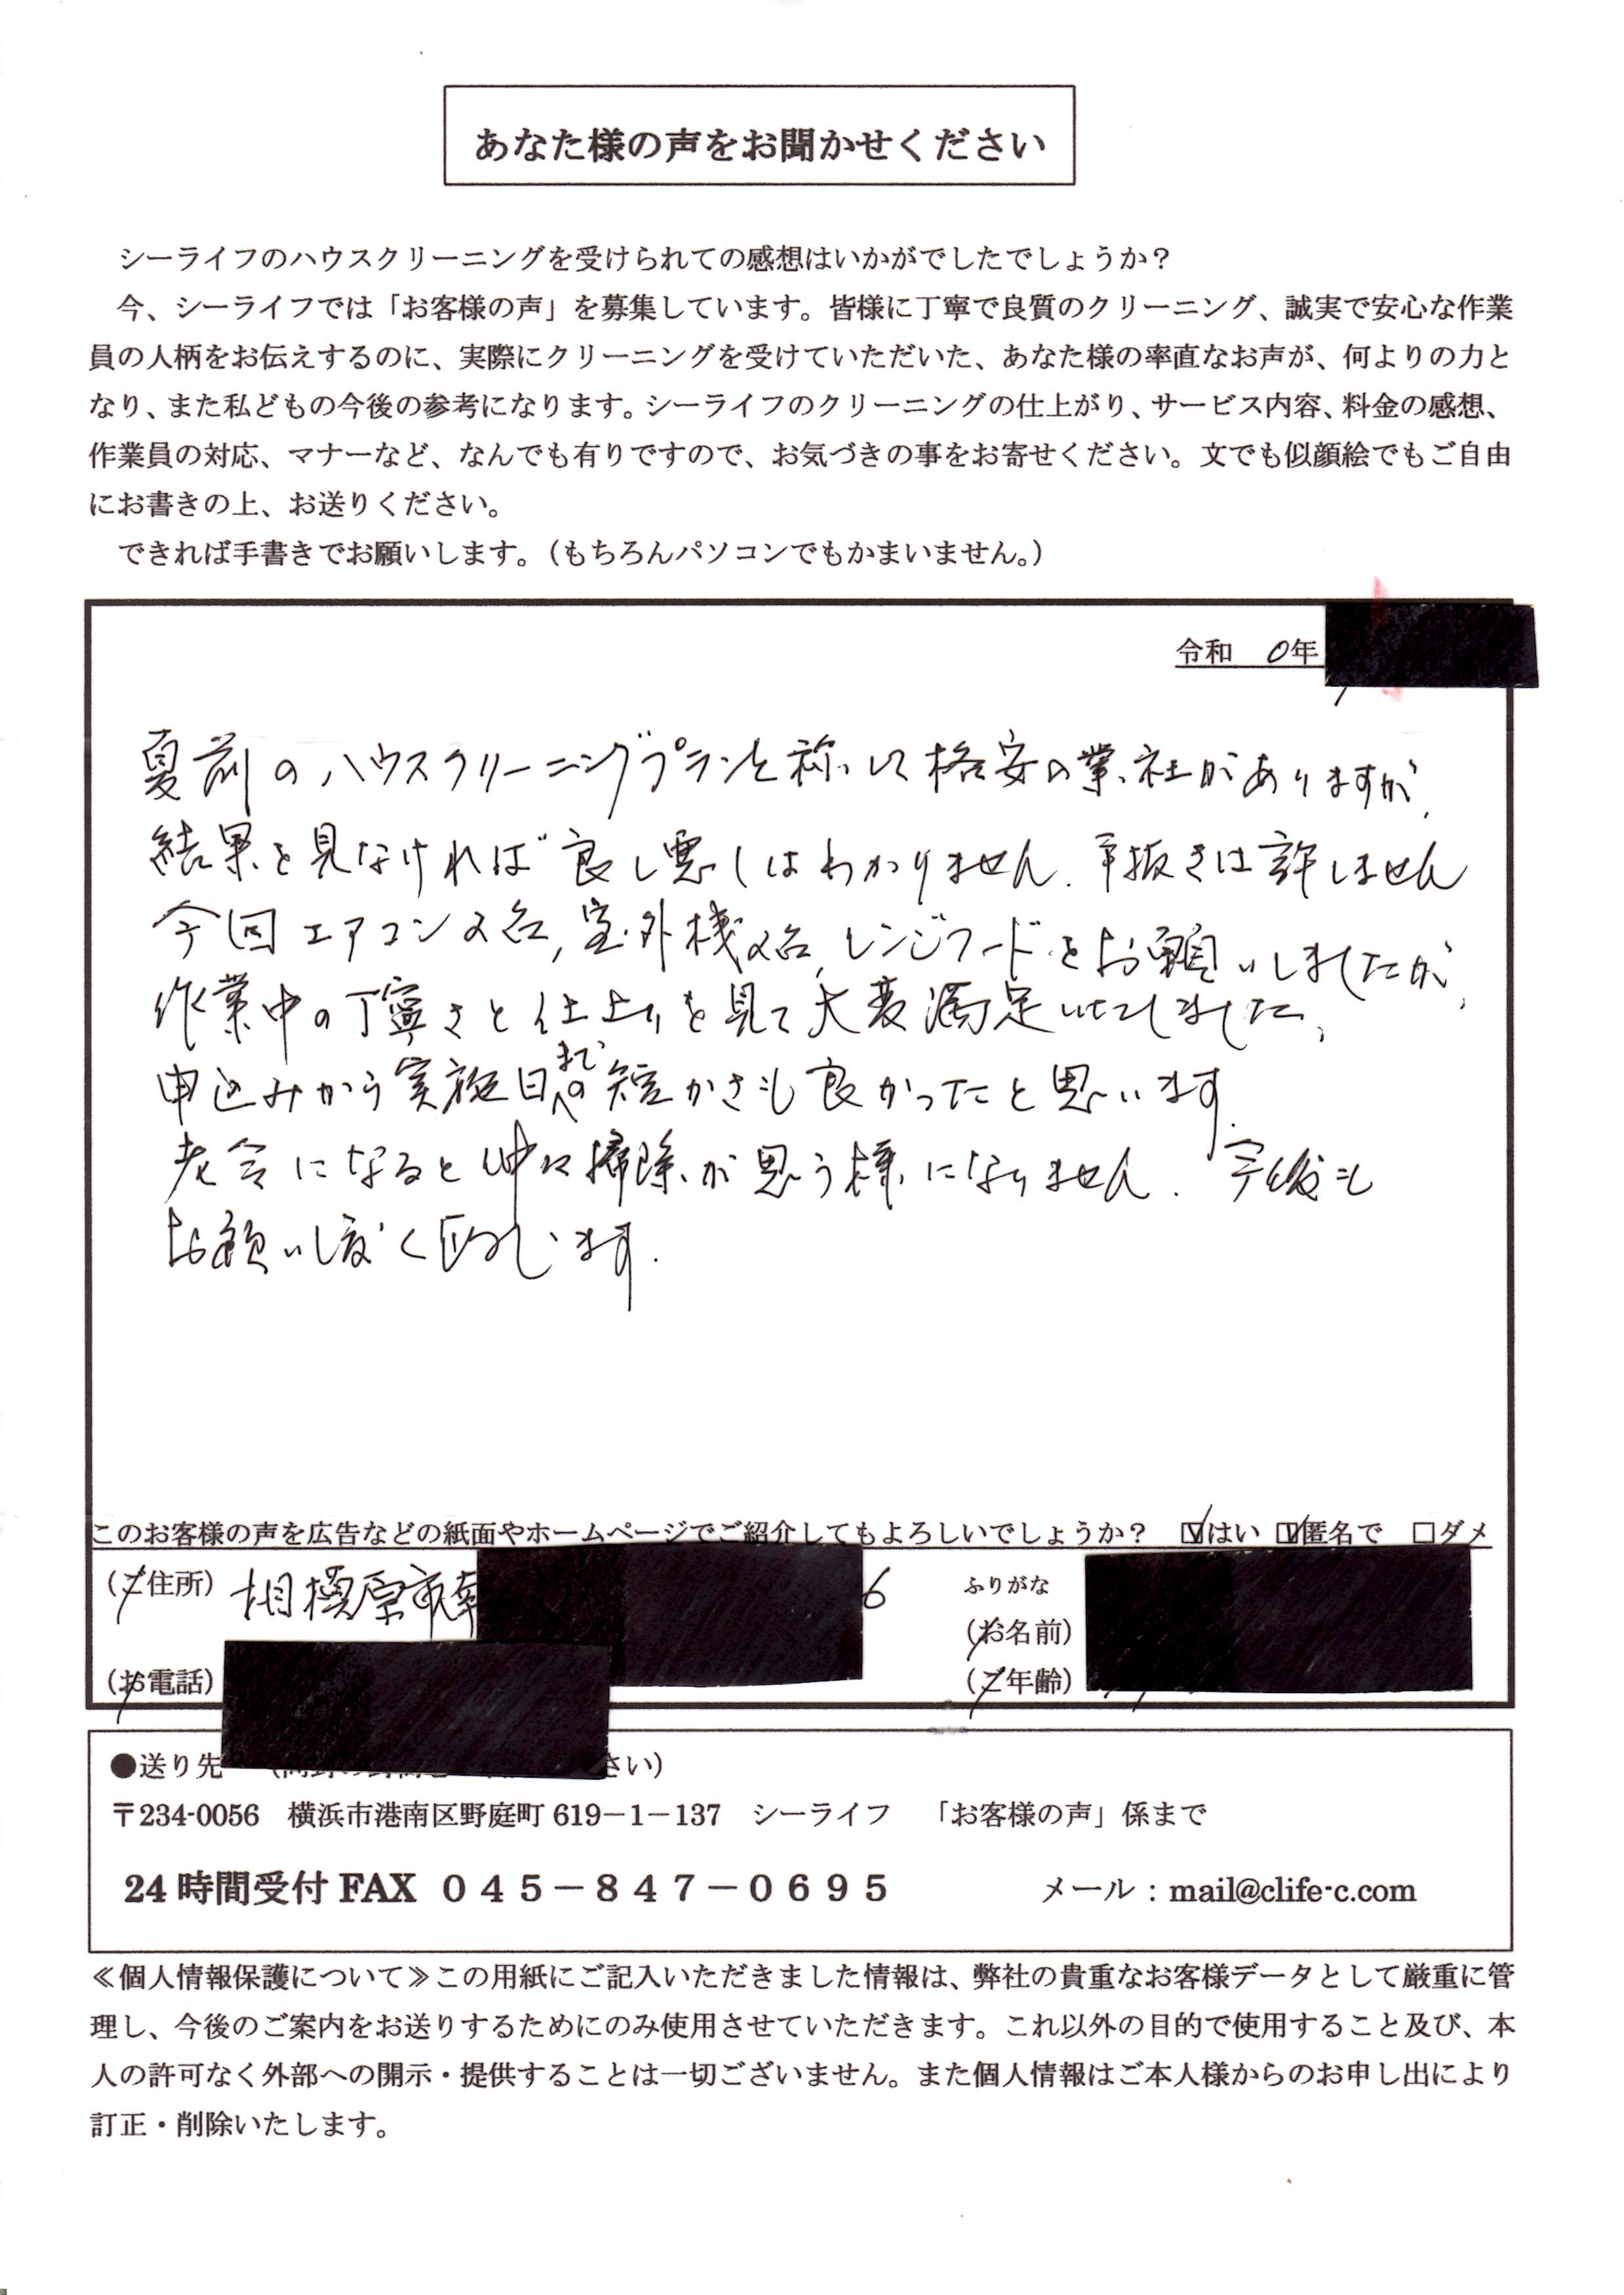 あなた様の声をお聞かせください
シーライフのハウスクリーニングを受けられての感想はいかがでしたでしょうか？
今、シーライフでは「お客様の声」を募集しています。皆様に丁寧で良質のクリーニング、誠実で安心な作業
員の人柄をお伝えするのに、実際にクリーニングを受けていただいた、あなた様の率直なお声が、何よりの力と
なり、また私どもの今後の参考になります。シーライフのクリーニングの仕上がり、サービス内容、料金の感想、
作業員の対応、マナーなど、なんでも有りですので、お気づきの事をお寄せください。文でも似顔絵でもご自由
にお書きの上、お送りください。
できれば手書きでお願いします。（もちろんパソコンでもかまいません。）
令和 0年
夏前のハウスクリーニングプランと称して格安の業社がありますが、
結果を見なければ良し悪しはわかりません. 手抜きは許しません
今回エアコン2台, 室外機2台, レンジフードをお願いしましたが、
作業中の丁寧さと仕上りを見て大変満足いたしました、
申込みから実施日までの短かさも良かったと思います.
老令になると仲々掃除が思う様になりません. 今後も
お願いし度く存じます.
このお客様の声を広告などの紙面やホームページでご紹介してもよろしいでしょうか？ ☑はい ☑匿名で □ダメ
(ご住所) 相模原市南 6 ふりがな
(お名前)
(お電話) (ご年齢)
●送り先 さい）
〒234-0056 横浜市港南区野庭町 619－1－137 シーライフ 「お客様の声」係まで
24 時間受付 FAX ０４５－８４７－０６９５ メール：mail@clife-c.com
≪個人情報保護について≫この用紙にご記入いただきました情報は、弊社の貴重なお客様データとして厳重に管
理し、今後のご案内をお送りするためにのみ使用させていただきます。これ以外の目的で使用すること及び、本
人の許可なく外部への開示・提供することは一切ございません。また個人情報はご本人様からのお申し出により
訂正・削除いたします。